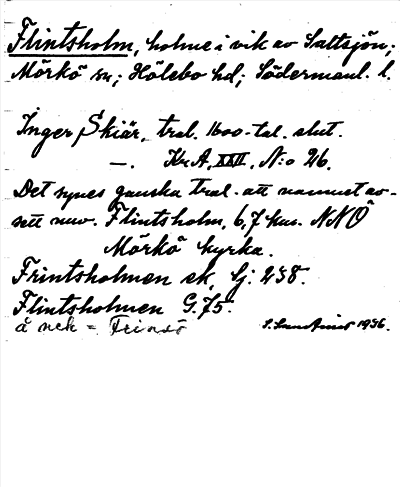 Flintsholm, holme i vik av Saltsjön;
Mörkö sn; Hölebo hd; Södermanl. l.
Inger Skiär, trol. 1600-tal. slut.
—. Kr.A. XXII. N:o 26.
Det synes ganska trol. att namnet av-
sett nuv. Flintsholm, 6,7 km. NNÖ
Mörkö kyrka.
Frintsholmen ek, Sj. 238.
Flintsholmen G. 75.
å nek = Frinsö 1936.